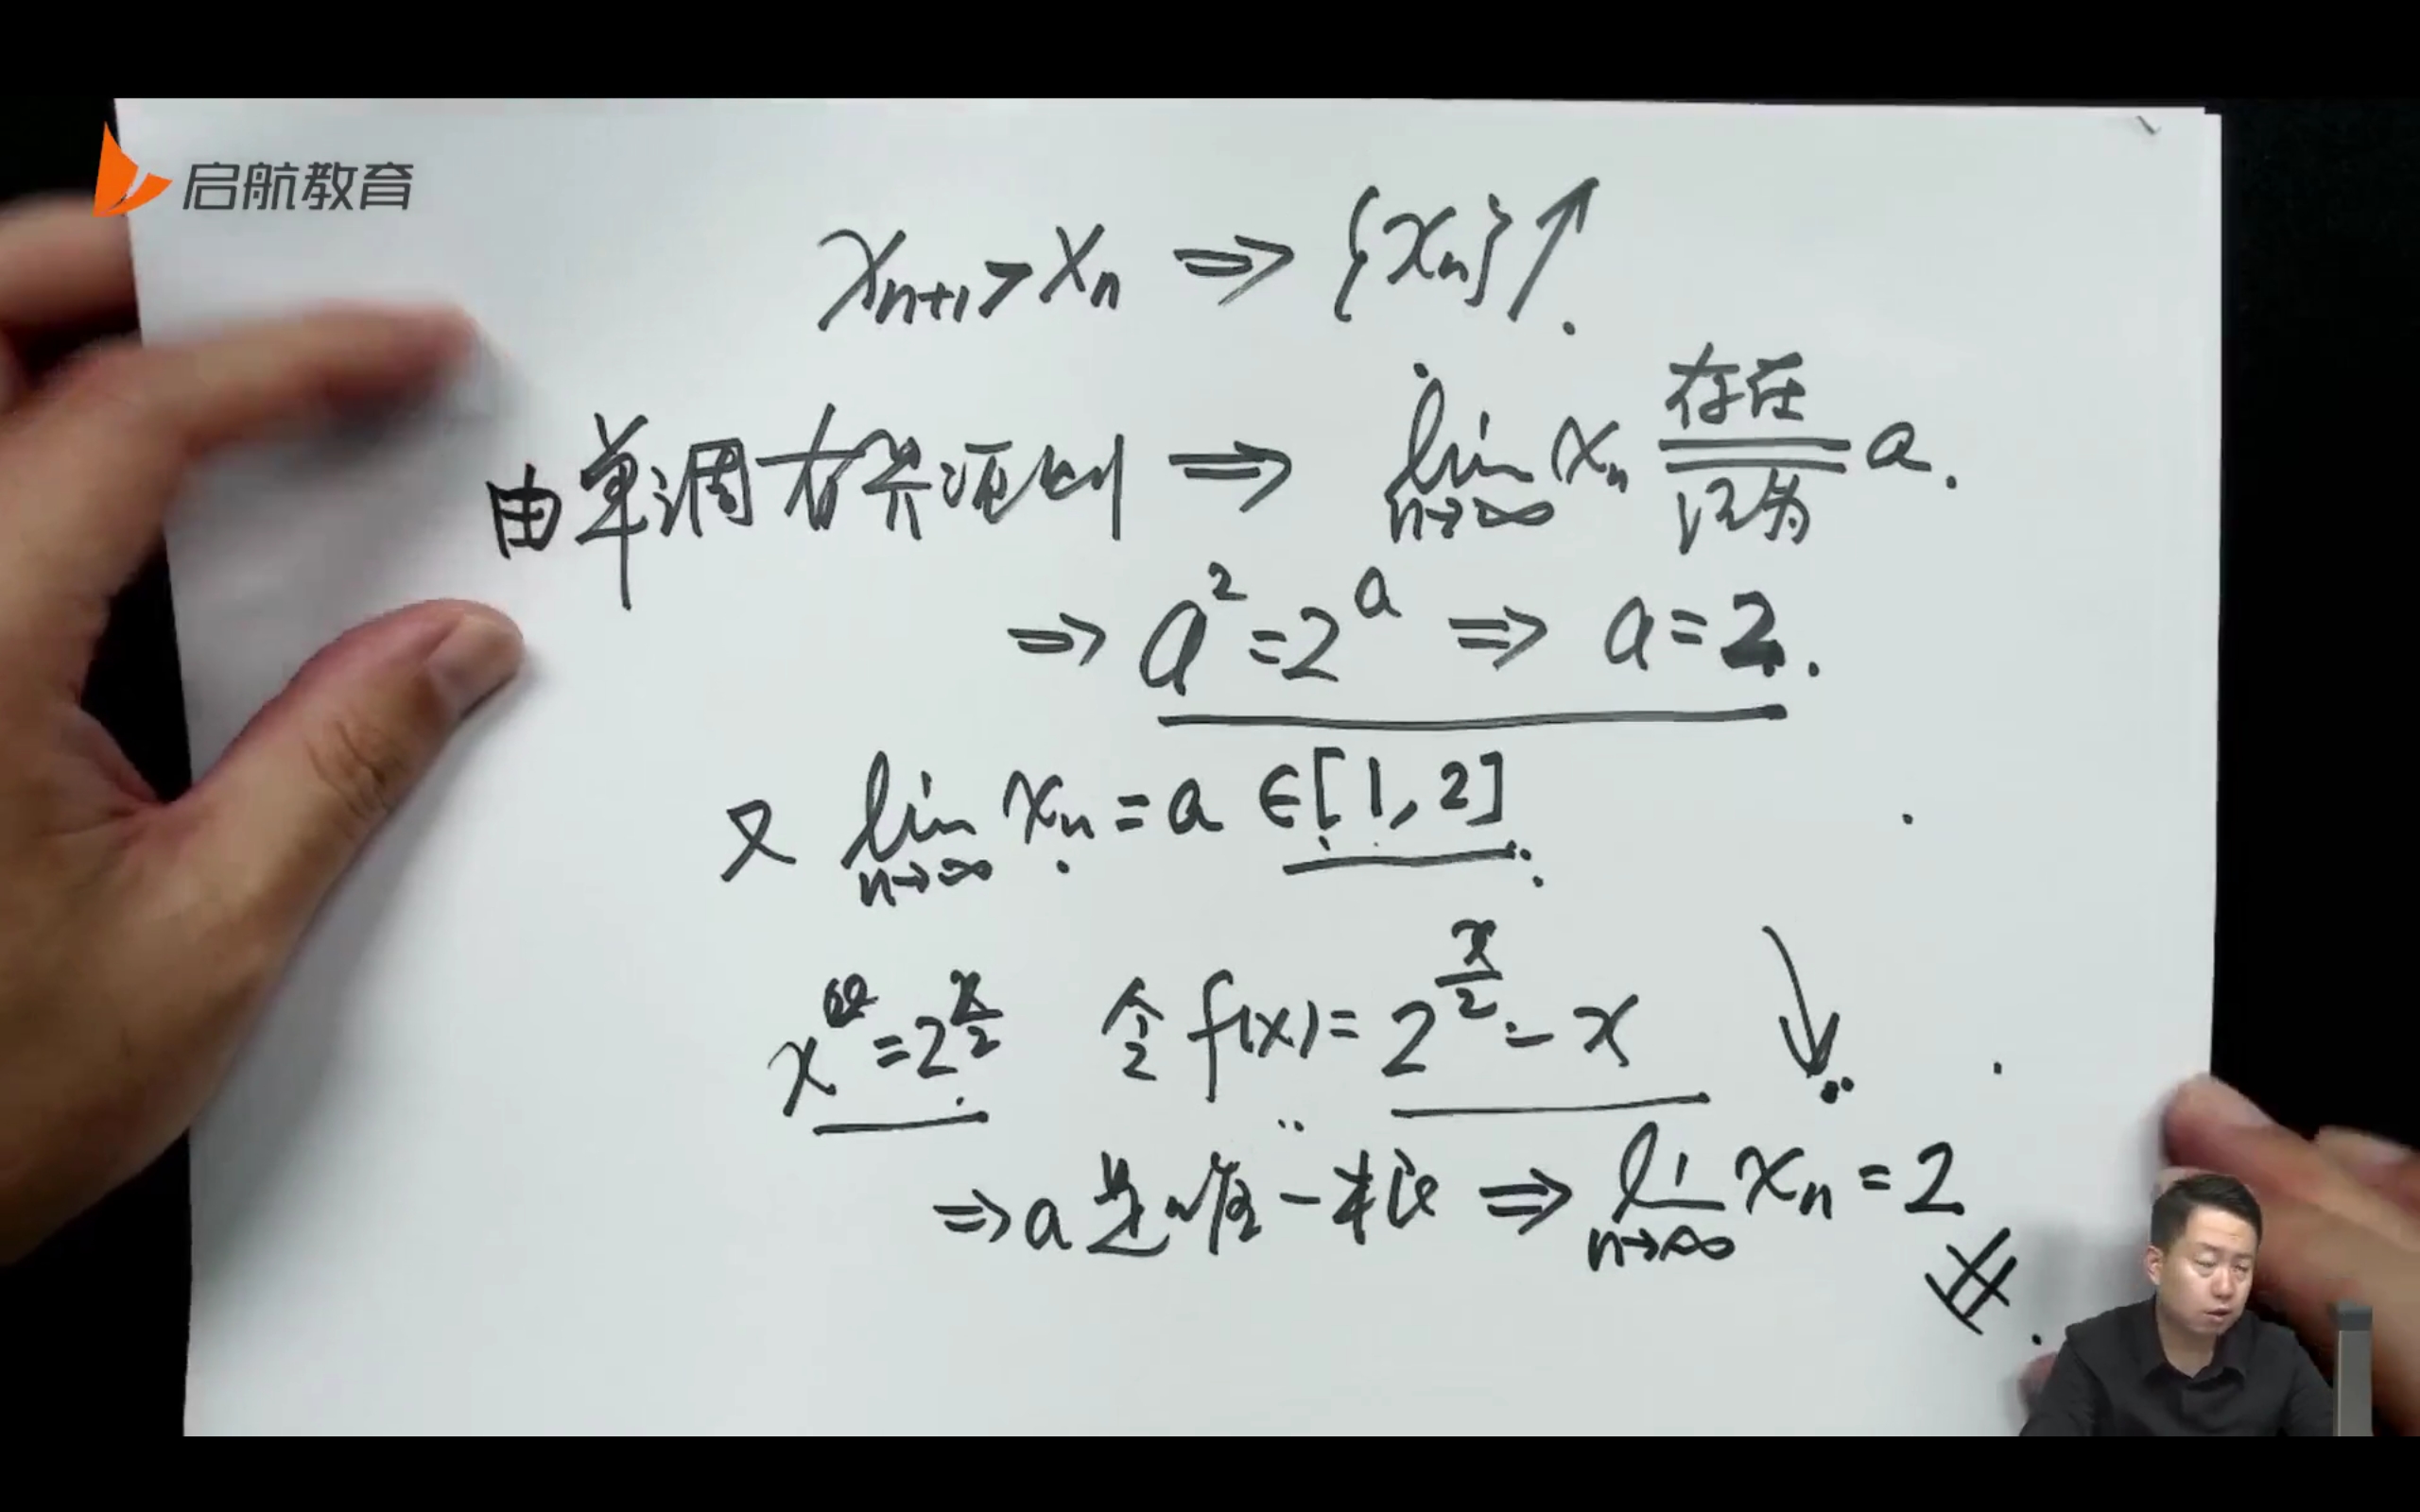 启航教育
xₙ₊₁ > xₙ ⇒ {xₙ}↑.
由单调有界准则 ⇒ lim n→∞ xₙ 存在 记为 a.
⇒ a² = 2ᵃ ⇒ a = 2.
又 lim n→∞ xₙ = a ∈ [1, 2]
x = 2^(x/2) 令 f(x) = 2^(x/2) - x
⇒ a 是唯一根 ⇒ lim n→∞ xₙ = 2
#